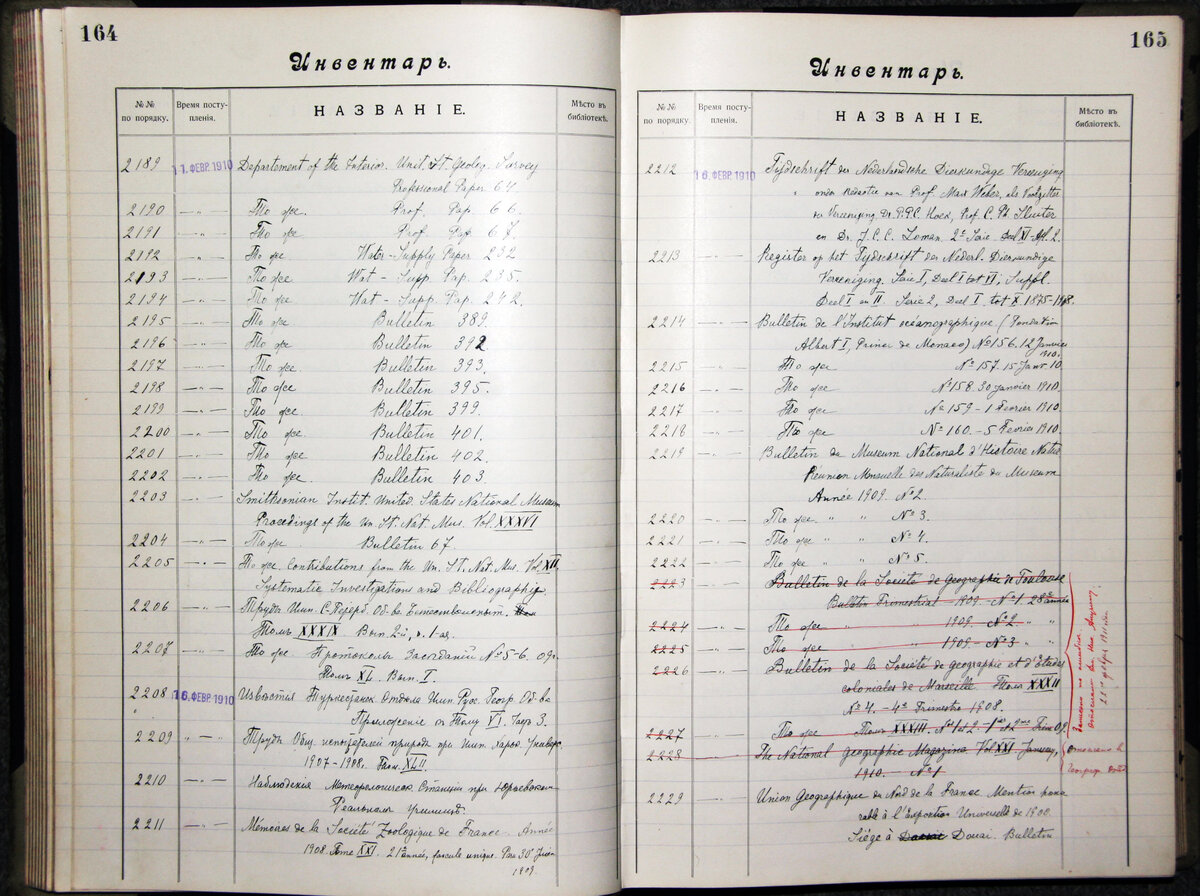 164
Инвентарь.
№№ по порядку.
Время поступленія.
НАЗВАНІЕ.
Мѣсто въ библіотекѣ.
2189 11. ФЕВР. 1910 Departement of the Interior. Unit. St. Geolog. Survey
Professional Paper 64.
2190 —„— То же. Prof. Pap. 66.
2191 —„— То же Prof. Pap. 67.
2192 —„— То же Water-Supply Paper 232
2193 —„— То же Wat-Supp. Pap. 235.
2194 —„— То же Wat-Supp. Pap. 242.
2195 —„— То же Bulletin 389.
2196 —„— То же Bulletin 392
2197 —„— То же Bulletin 393.
2198 —„— То же Bulletin 395.
2199 —„— То же Bulletin 399.
2200 —„— То же Bulletin 401.
2201 —„— То же Bulletin 402.
2202 —„— То же Bulletin 403.
2203 —„— Smithsonian Instit. United. States National Museum
Procedings of the Un. St. Nat. Mus. Vol. XXXVI
2204 —„— То же. Bulletin 67.
2205 —„— То же. Contributions from the Un. St. Nat. Mus. Vol XII
Systematic Investigations and Bibliography
2206 —„— Труды Имп. С. Петерб. Об-ва Естествоиспыт.
Томъ XXXIX Вып. 2й, ч. 1-ая
2207 —„— То же Протоколы Засѣданій № 5-6. 09г.
Томъ XL. Вып. I.
2208 16. ФЕВР. 1910 Извѣстія Туркестанск. Отдѣла Имп. Рус. Геогр. Об-ва
Приложеніе къ Тому VI. Часть 3.
2209 Труды Общ. испытателей природы при Имп. Харьк. Универс.
1907-1908. Томъ XLII
2210 —„— Наблюденія Метеорологическ. Станціи при Юрьевском
Реальном училищѣ.
2211 —„— Mémoires de la Société Zoologique de France. Année
1908. Tome XXI. 21e année, fascule unique. Par. 30 Juin
1909.
165
Инвентарь.
№№ по порядку.
Время поступленія.
НАЗВАНІЕ.
Мѣсто въ библіотекѣ.
2212 16. ФЕВР. 1910 Tijdschrift der Nederlandsche Dierkundige Vereeniging
onder Redactie van Prof. Max Weber, als Voorzitter
der Vereeniging, Dr. P.P.C. Hoek, Prof. C. Ph. Sluiter
en Dr. J.C.C. Loman. 2e Serie. Deel XI. Afl. 2.
2213 —„— Register op het Tijdschrift der Nederl. Dierkundige
Vereeniging. Serie I, Deel I tot VI, Suppl.
Deel I en II Serie 2, Deel I tot X 1875-1908.
2214 —„— Bulletin de l'Institut océanographique (Fondation
Albert I, Prince de Monaco) № 156. 12 Janvier
1910.
2215 —„— То же № 157. 15 Janv. 10.
2216 —„— То же № 158. 30 janvier 1910.
2217 —„— То же № 159 - 1 Fevrier 1910.
2218 —„— То же № 160. - 5 Fevrier 1910.
2219 —„— Bulletin de Museum National d'Histoire Natur
Reunion Mensuelle des Naturaliste du Museum
Année 1909. № 2.
2220 —„— То же „ „ № 3.
2221 —„— То же „ „ № 4.
2222 —„— То же „ „ № 5.
2223 —„— Bulletin de la Société de Geographie de Toulouse
Bulletin Trimestrial - 1909. - № 1. 28e année
2224 —„— То же „ 1909. № 2 „ „
2225 —„— То же „ 1909. № 3 „
2226 —„— Bulletin de la Société de geographie et d'Etudes
coloniales de Marseille Томъ XXXII
№ 4. - 4e Trimestre 1908.
2227 —„— То же Томъ XXXIII. № 1 et 2 - 1re et 2me Trim 09.
2228 —„— The National geographic Magazine Vol XXI January,
1910. № 1
2229 —„— Union Geographique du Nord de la France Mention hono
rable à l'Exposition Universelle de 1900.
Siége à Douai. Bulletin
Записано по ошибкѣ.